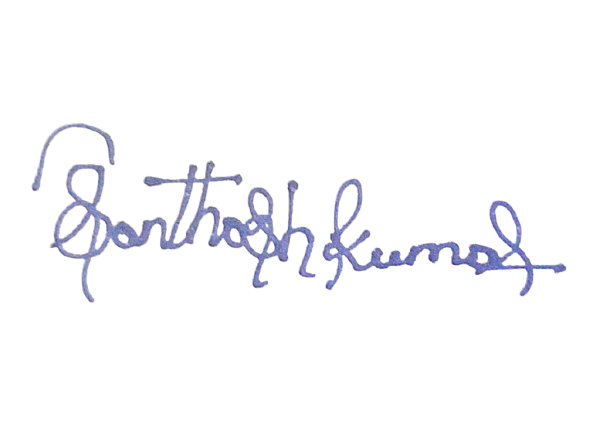 Santhosh Kumar